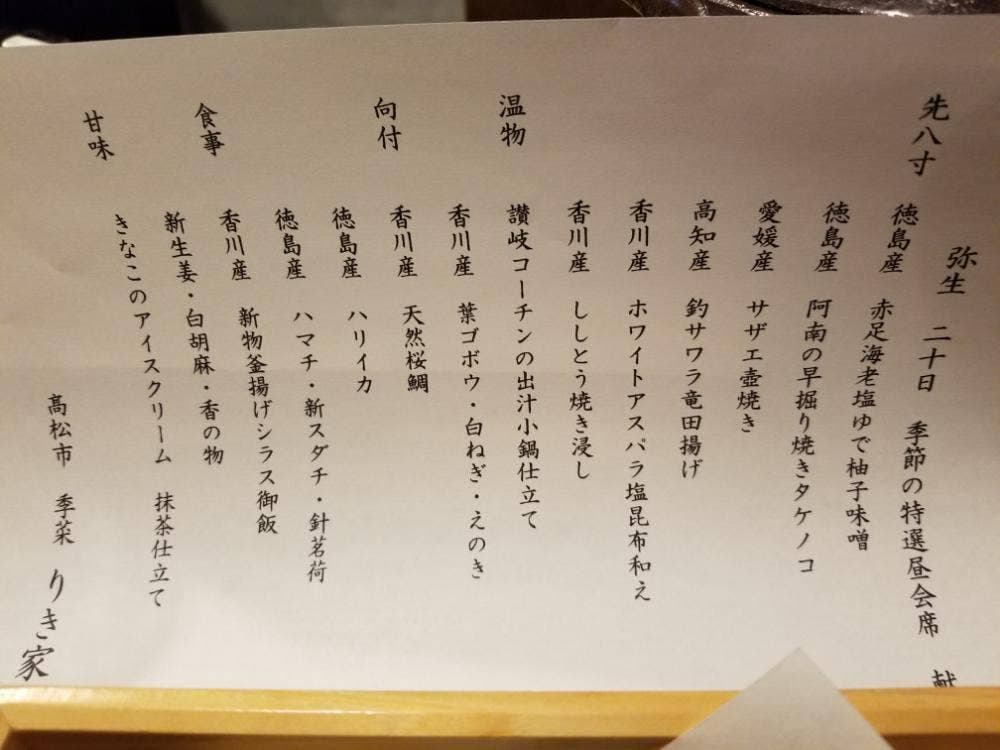 弥生 二十日 季節の特選昼会席 献
先八寸
徳島産 赤足海老塩ゆで柚子味噌
徳島産 阿南の早掘り焼きタケノコ
愛媛産 サザエ壺焼き
高知産 釣サワラ竜田揚げ
香川産 ホワイトアスパラ塩昆布和え
香川産 ししとう焼き浸し
温物 讃岐コーチンの出汁小鍋仕立て
香川産 葉ゴボウ・白ねぎ・えのき
向付 香川産 天然桜鯛
徳島産 ハリイカ
徳島産 ハマチ・新スダチ・針茗荷
食事 香川産 新物釜揚げシラス御飯
新生姜・白胡麻・香の物
甘味 きなこのアイスクリーム 抹茶仕立て
高松市 季菜 りき家